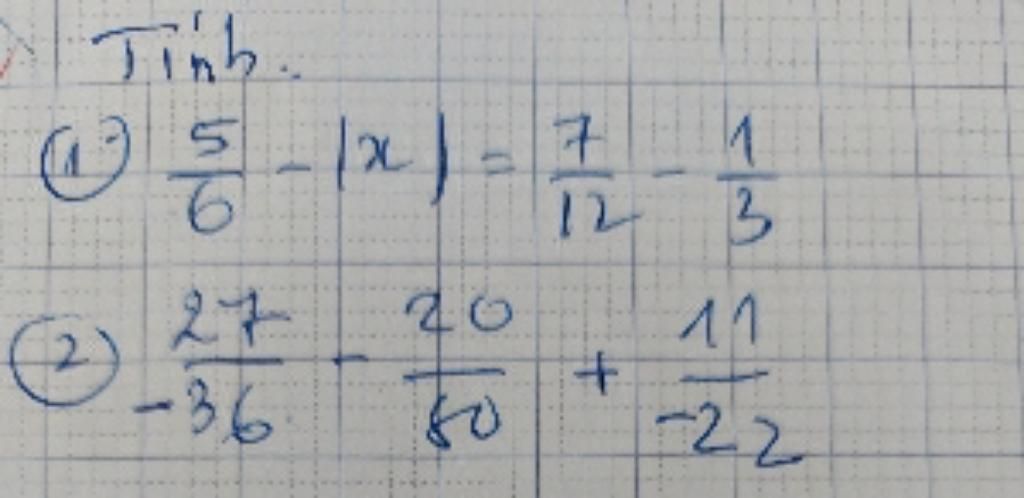 Tính.
① 5/6 - |x| = 7/12 - 1/3
② 27/-36 - 20/80 + 11/-22